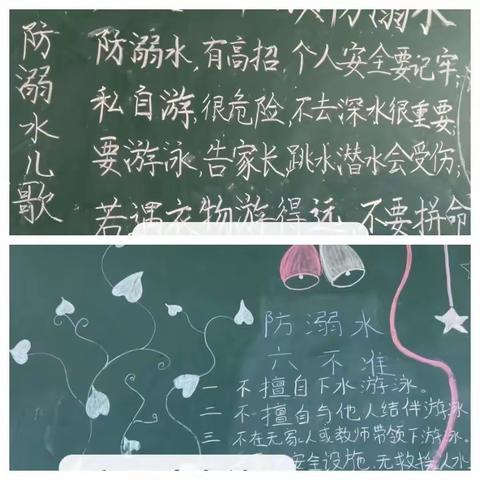 防溺水儿歌
防溺水
防溺水,有高招,个人安全要记牢;
私自游,很危险,不去深水很重要;
要游泳,告家长,跳水潜水会受伤;
若遇衣物游得远,不要拼命
防溺水
六不准
一 不擅自下水游泳。
二 不擅自与他人结伴游泳
三 不在无家人或教师带领下游泳。
安全设施、无救援人